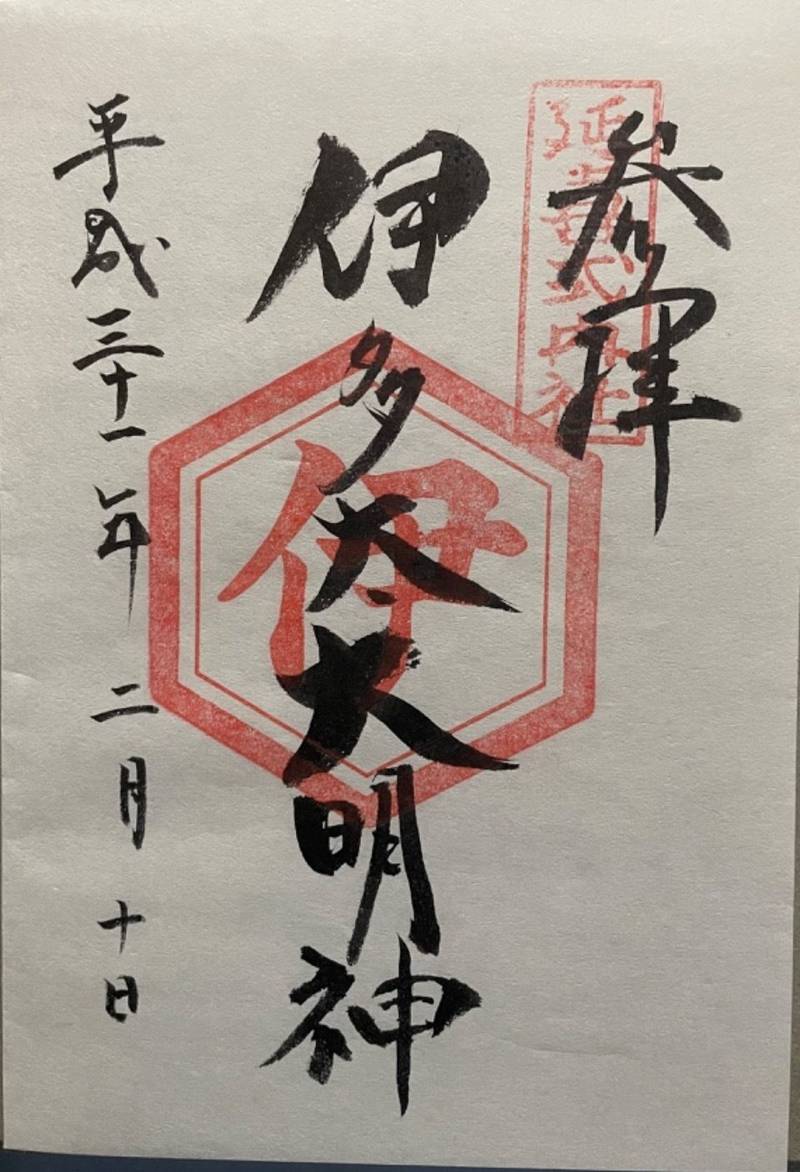 参拝
延喜式内社
伊多太大明神
伊
平成三十一年 二月 十日